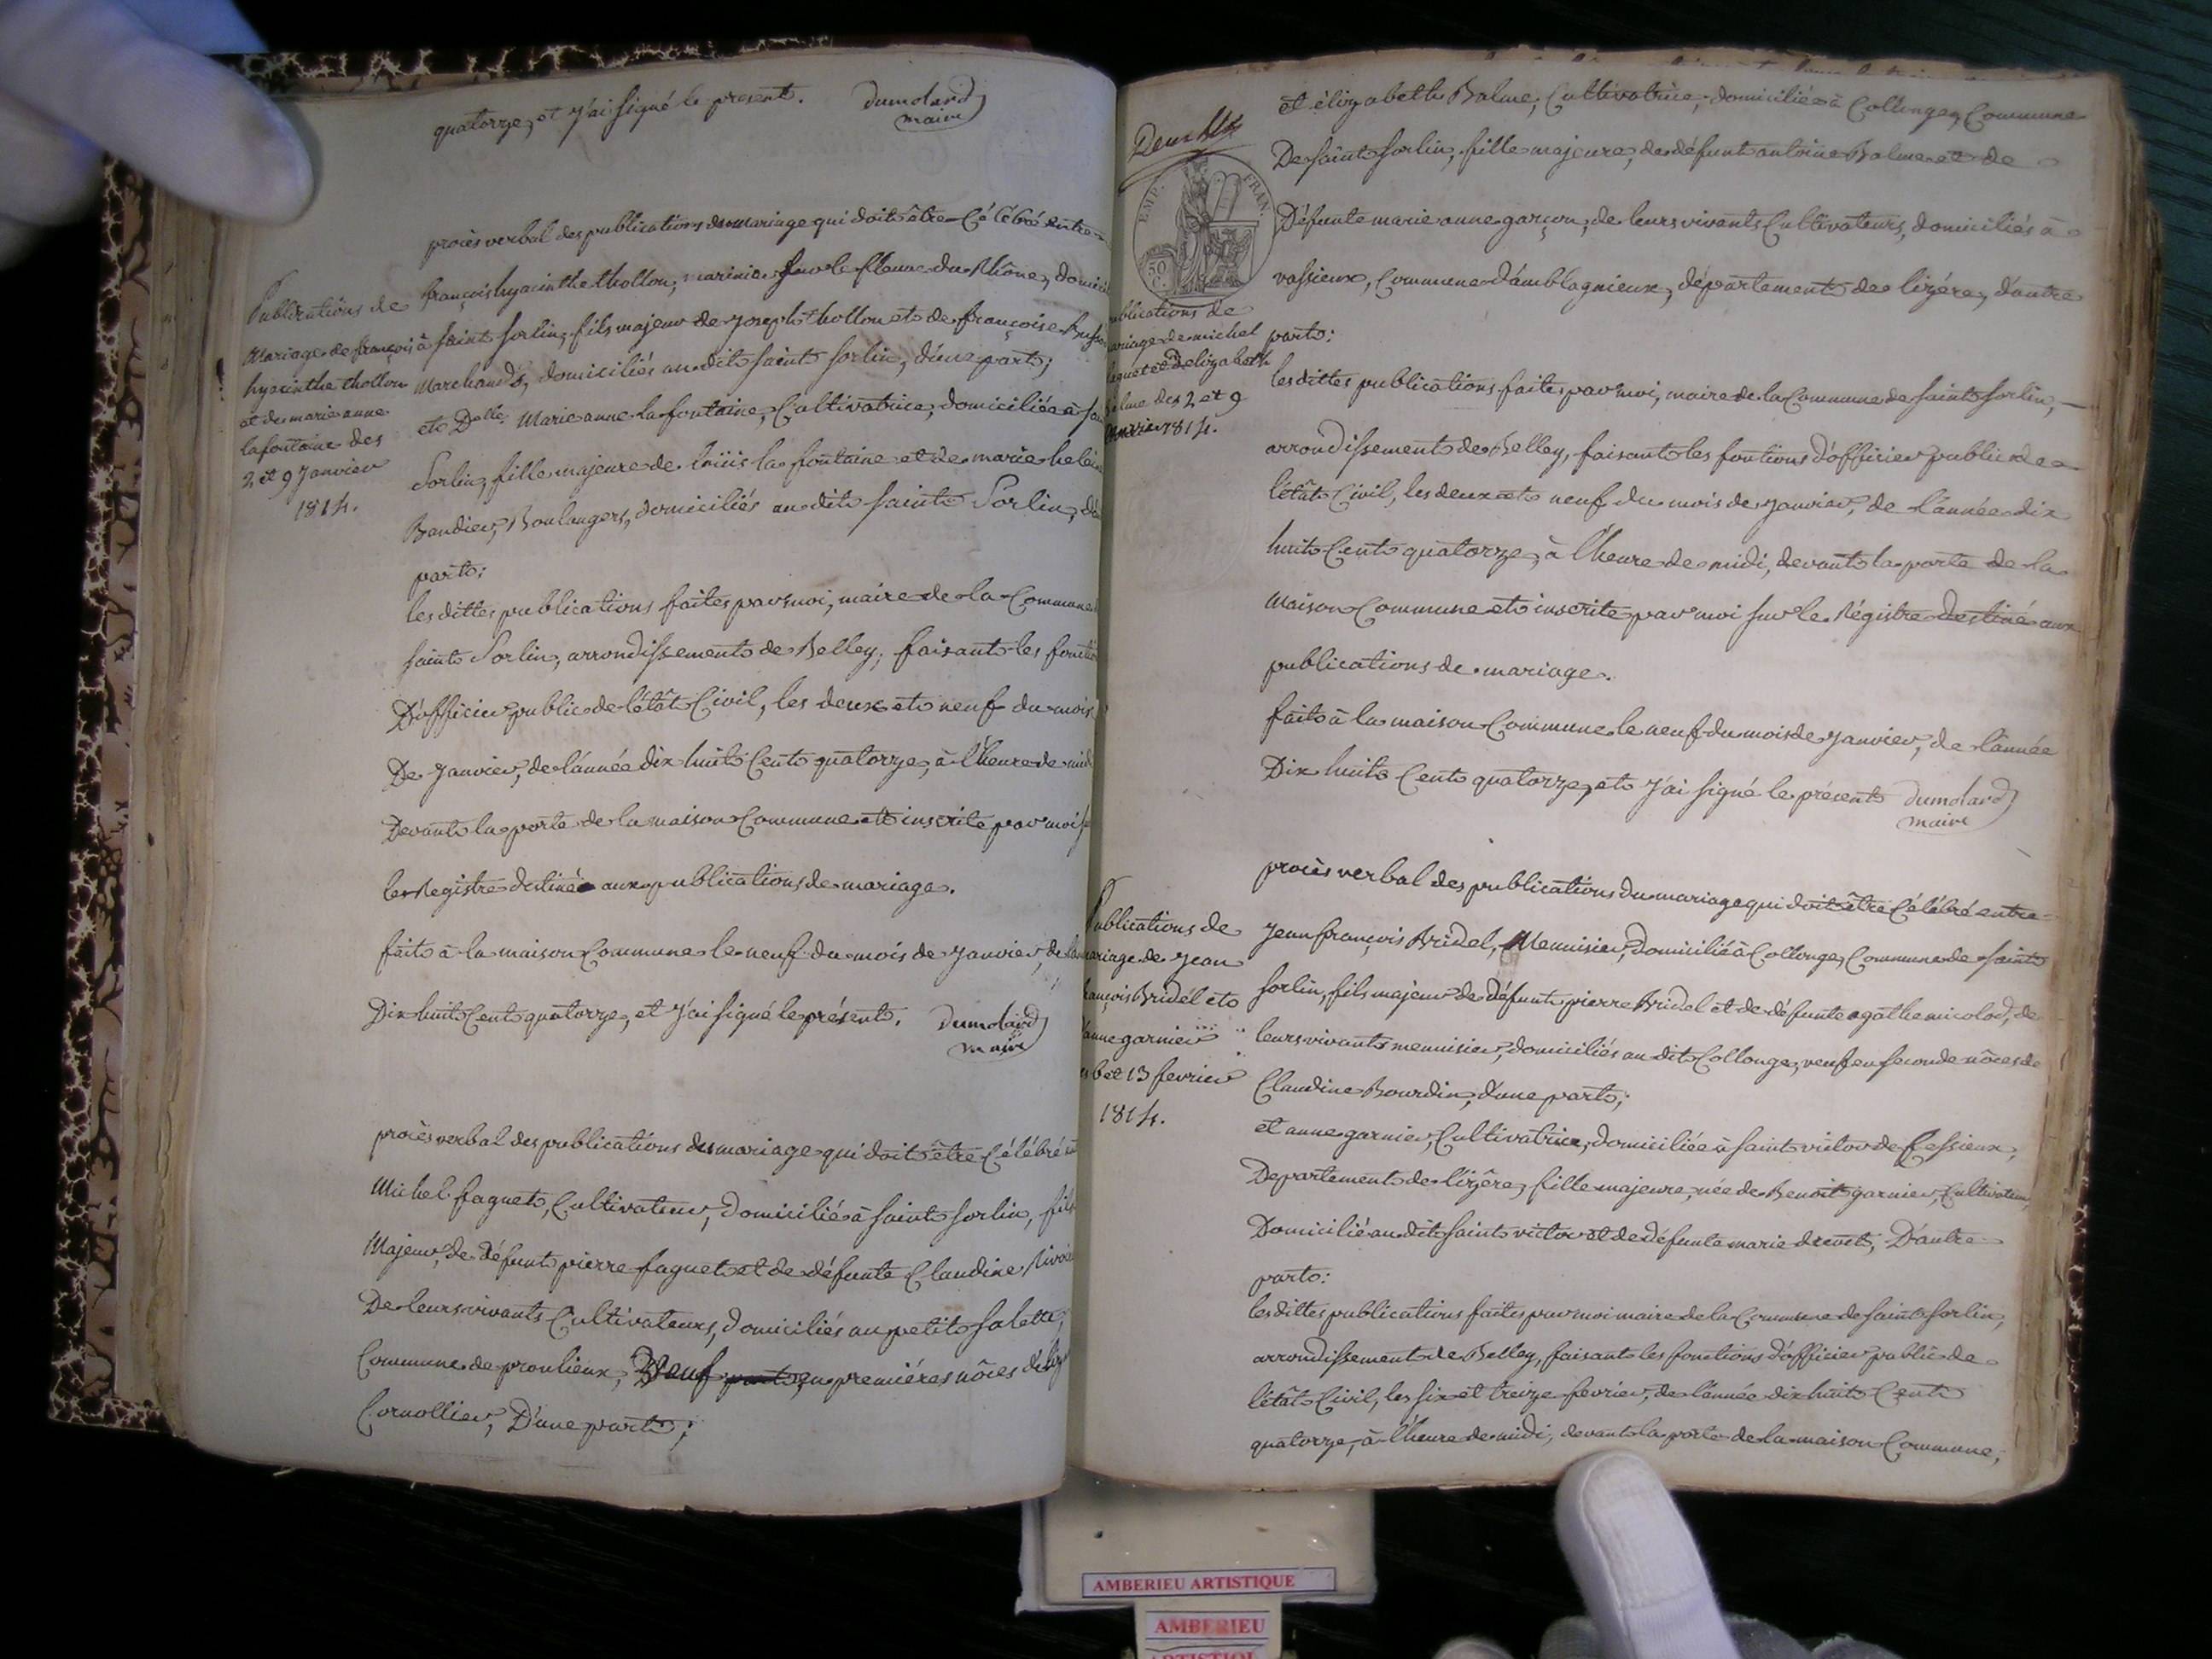 quatorze, et J'ai signé le present. Dumolard
maire
procès verbal des publications du mariage qui doit être Célébré entre
Publications de
Mariage de françois
hyacinthe thollon
et de marie anne
lafontaine des
2 et 9 Janvier
1814.
françois hyacinthe thollon, marinier sur le fleuve du Rhône, domici
à saint Sorlin, fils majeur de Joseph thollon et de françoise
Marchands, domiciliés au dit saint Sorlin, d'une part;
et Delle Marie anne lafontaine, Cultivatrice, domiciliée à
Sorlin, fille majeure de loüis la fontaine et de marie
Bandier, Boulangers, domiciliés au dit saint Sorlin, d'a
part;
les dittes publications faites par moi, maire de la Commune
saint Sorlin, arrondissement de Belley, faisant les foncti
D'officier public de l'étât Civil, les deux et neuf du mois
De Janvier, de l'année dix huit Cent quatorze, à l'heure de midi
Devant la porte de la maison Commune et inscrite par moi
le Registre destiné aux publications de mariage.
fait à la maison Commune le neuf du mois de Janvier, de
Dix huit Cent quatorze, et J'ai signé le présent. Dumolard
maire
procès verbal des publications du mariage qui doit être Célébré
Michel faguet, Cultivateur, domicilié à saint Sorlin, fils
Majeur, de défunt pierre faguet et de défunte Claudine
De leurs vivants Cultivateurs, domiciliés au petit Salette,
Commune de proulieux, Veuf en premiéres nôces de
Cornollier, D'une part;
Deux
EMP. FRAN.
50 C.
et élizabeth Balme, Cultivatrice, domiciliée à Collonge, Commune
De saint Sorlin, fille majeure, de défunt antoine Balme et de
Défunte marie anne garçon, de leurs vivants Cultivateurs, domiciliés à
vassieux, Commune d'amblagnieux, département de lizére, d'autre
part:
ublications de
ariage de michel
aguet et Delizabeth
alme des 2 et 9
anvier 1814.
les dittes publications faites par moi, maire de la Commune de saint Sorlin,
arrondissement de Belley, faisant les fontions d'officier public de
l'étât Civil, les deux et neuf du mois de Janvier, de l'année dix
huit Cent quatorze, à l'heure de midi, devant la porte de la
Maison Commune et inscrite par moi sur le Régistre destiné aux
publications de mariage.
fait à la maison Commune le neuf du mois de Janvier, de l'année
Dix huit Cent quatorze, et J'ai signé le présent Dumolard
maire
procès verbal des publications du mariage qui doit être Célébré entre
Publications de
ariage de Jean
rançois Bridel et
d'anne garnier
es 6 et 13 fevrier
1814.
Jean françois Bridel, Menuisier, domicilié à Collonge, Commune de saint
Sorlin, fils majeur de défunt pierre Bridel et de défunte agathe nicolod, de
leurs vivants menuisier, domiciliés au dit Collonge, veuf en seconde nôces de
Claudine Bourdin, d'une part;
et anne garnier, Cultivatrice, domiciliée à saint victor de Cessieux,
Departement de l'izère, fille majeure, née de Benoit garnier, Cultivateur,
Domicilié au dit saint victor et de défunte marie drevet, D'autre
part:
les dittes publications faites par moi maire de la Commune de saint Sorlin,
arrondissement de Belley, faisant les fonctions d'officier public de
l'étât Civil, les six et treize fevrier, de l'année dix huit Cent
quatorze, à l'heure de midi, devant la porte de la maison Commune,
AMBERIEU ARTISTIQUE
AMBERIEU
ARTISTIQUE